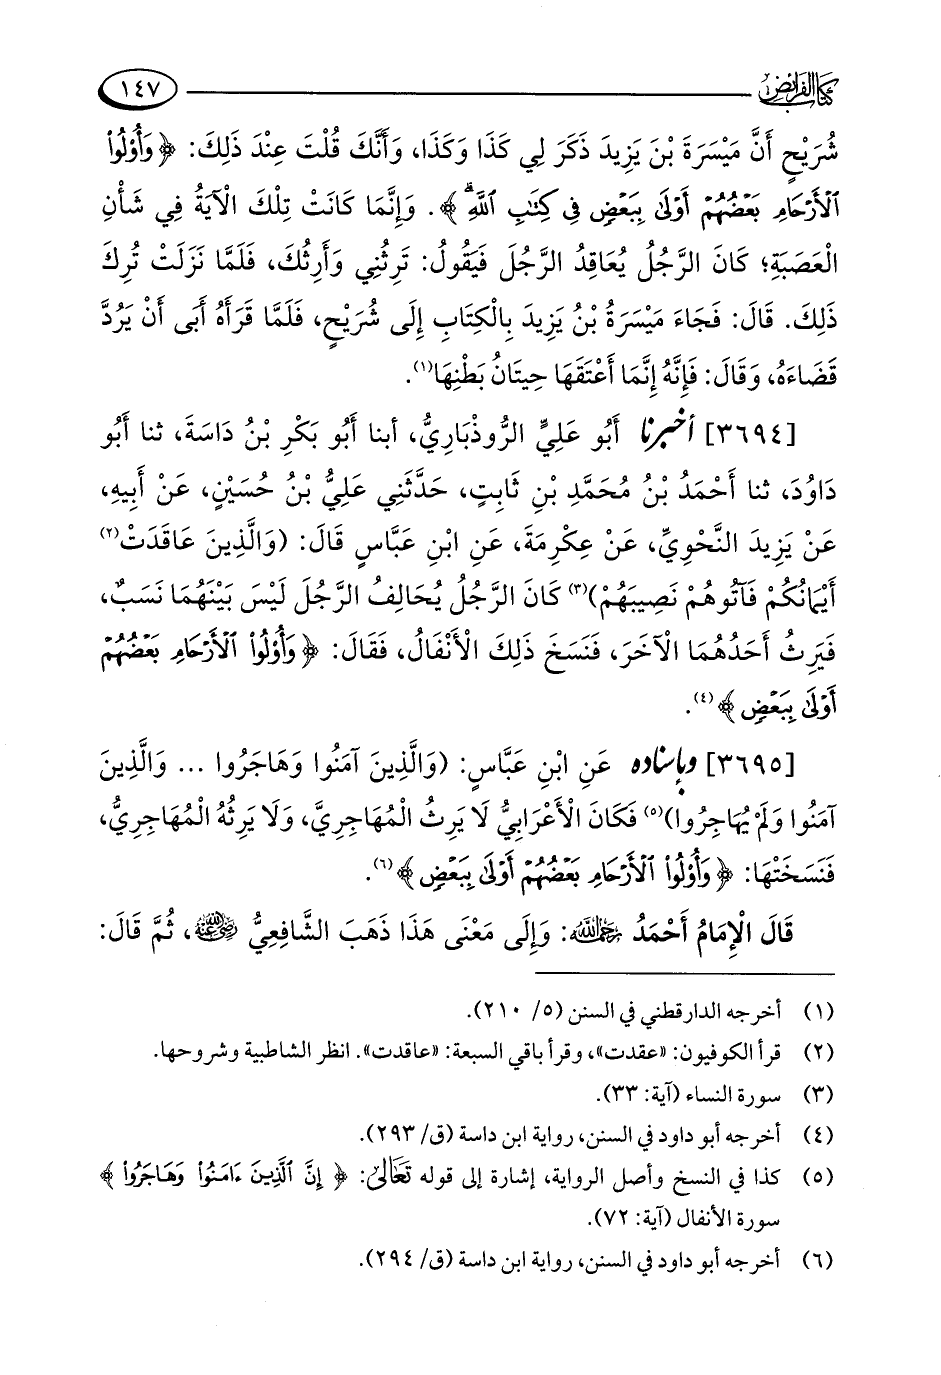 كتاب الفرائض
١٤٧
شُرَيْحٍ أَنَّ مَيْسَرَةَ بْنَ يَزِيدَ ذَكَرَ لِي كَذَا وَكَذَا، وَأَنَّكَ قُلْتَ عِنْدَ ذَلِكَ: ﴿ وَأُوْلُواْ
ٱلْأَرْحَامِ بَعْضُهُمْ أَوْلَىٰ بِبَعْضٍ فِى كِتَٰبِ ٱللَّهِ ﴾. وَإِنَّمَا كَانَتْ تِلْكَ الْآيَةُ فِي شَأْنِ
الْعَصَبَةِ؛ كَانَ الرَّجُلُ يُعَاقِدُ الرَّجُلَ فَيَقُولُ: تَرِثُنِي وَأَرِثُكَ، فَلَمَّا نَزَلَتْ تُرِكَ
ذَلِكَ. قَالَ: فَجَاءَ مَيْسَرَةُ بْنُ يَزِيدَ بِالْكِتَابِ إِلَى شُرَيْحٍ، فَلَمَّا قَرَأَهُ أَبَى أَنْ يَرُدَّ
قَضَاءَهُ، وَقَالَ: فَإِنَّهُ إِنَّمَا أَعْتَقَهَا حِيتَانُ بَطْنِهَا(١).
[٣٦٩٤] أخبرنا أَبُو عَلِيٍّ الرُّوذْبَارِيُّ، أبنا أَبُو بَكْرِ بْنُ دَاسَةَ، ثنا أَبُو
دَاوُدَ، ثنا أَحْمَدُ بْنُ مُحَمَّدِ بْنِ ثَابِتٍ، حَدَّثَنِي عَلِيُّ بْنُ حُسَيْنٍ، عَنْ أَبِيهِ،
عَنْ يَزِيدَ النَّحْوِيِّ، عَنْ عِكْرِمَةَ، عَنِ ابْنِ عَبَّاسٍ قَالَ: (وَالَّذِينَ عَاقَدَتْ(٢)
أَيْمَانُكُمْ فَآتُوهُمْ نَصِيبَهُمْ)(٣) كَانَ الرَّجُلُ يُحَالِفُ الرَّجُلَ لَيْسَ بَيْنَهُمَا نَسَبٌ،
فَيَرِثُ أَحَدُهُمَا الْآخَرَ، فَنَسَخَ ذَلِكَ الْأَنْفَالُ، فَقَالَ: ﴿ وَأُوْلُواْ ٱلْأَرْحَامِ بَعْضُهُمْ
أَوْلَىٰ بِبَعْضٍ ﴾(٤).
[٣٦٩٥] وبإسناده عَنِ ابْنِ عَبَّاسٍ: (وَالَّذِينَ آمَنُوا وَهَاجَرُوا ... وَالَّذِينَ
آمَنُوا وَلَمْ يُهَاجِرُوا)(٥) فَكَانَ الْأَعْرَابِيُّ لَا يَرِثُ الْمُهَاجِرِيَّ، وَلَا يَرِثُهُ الْمُهَاجِرِيُّ،
فَنَسَخَتْهَا: ﴿ وَأُوْلُواْ ٱلْأَرْحَامِ بَعْضُهُمْ أَوْلَىٰ بِبَعْضٍ ﴾(٦).
قَالَ الْإِمَامُ أَحْمَدُ رَحِمَهُ اللَّهُ: وَإِلَى مَعْنَى هَذَا ذَهَبَ الشَّافِعِيُّ رَضِيَ اللَّهُ عَنْهُ، ثُمَّ قَالَ:
(١) أخرجه الدارقطني في السنن (٥/ ٢١٠).
(٢) قرأ الكوفيون: «عقدت»، وقرأ باقي السبعة: «عاقدت». انظر الشاطبية وشروحها.
(٣) سورة النساء (آية: ٣٣).
(٤) أخرجه أبو داود في السنن، رواية ابن داسة (ق/ ٢٩٣).
(٥) كذا في النسخ وأصل الرواية، إشارة إلى قوله تَعَالَىٰ: ﴿ إِنَّ ٱلَّذِينَ ءَامَنُواْ وَهَاجَرُواْ ﴾
سورة الأنفال (آية: ٧٢).
(٦) أخرجه أبو داود في السنن، رواية ابن داسة (ق/ ٢٩٤).